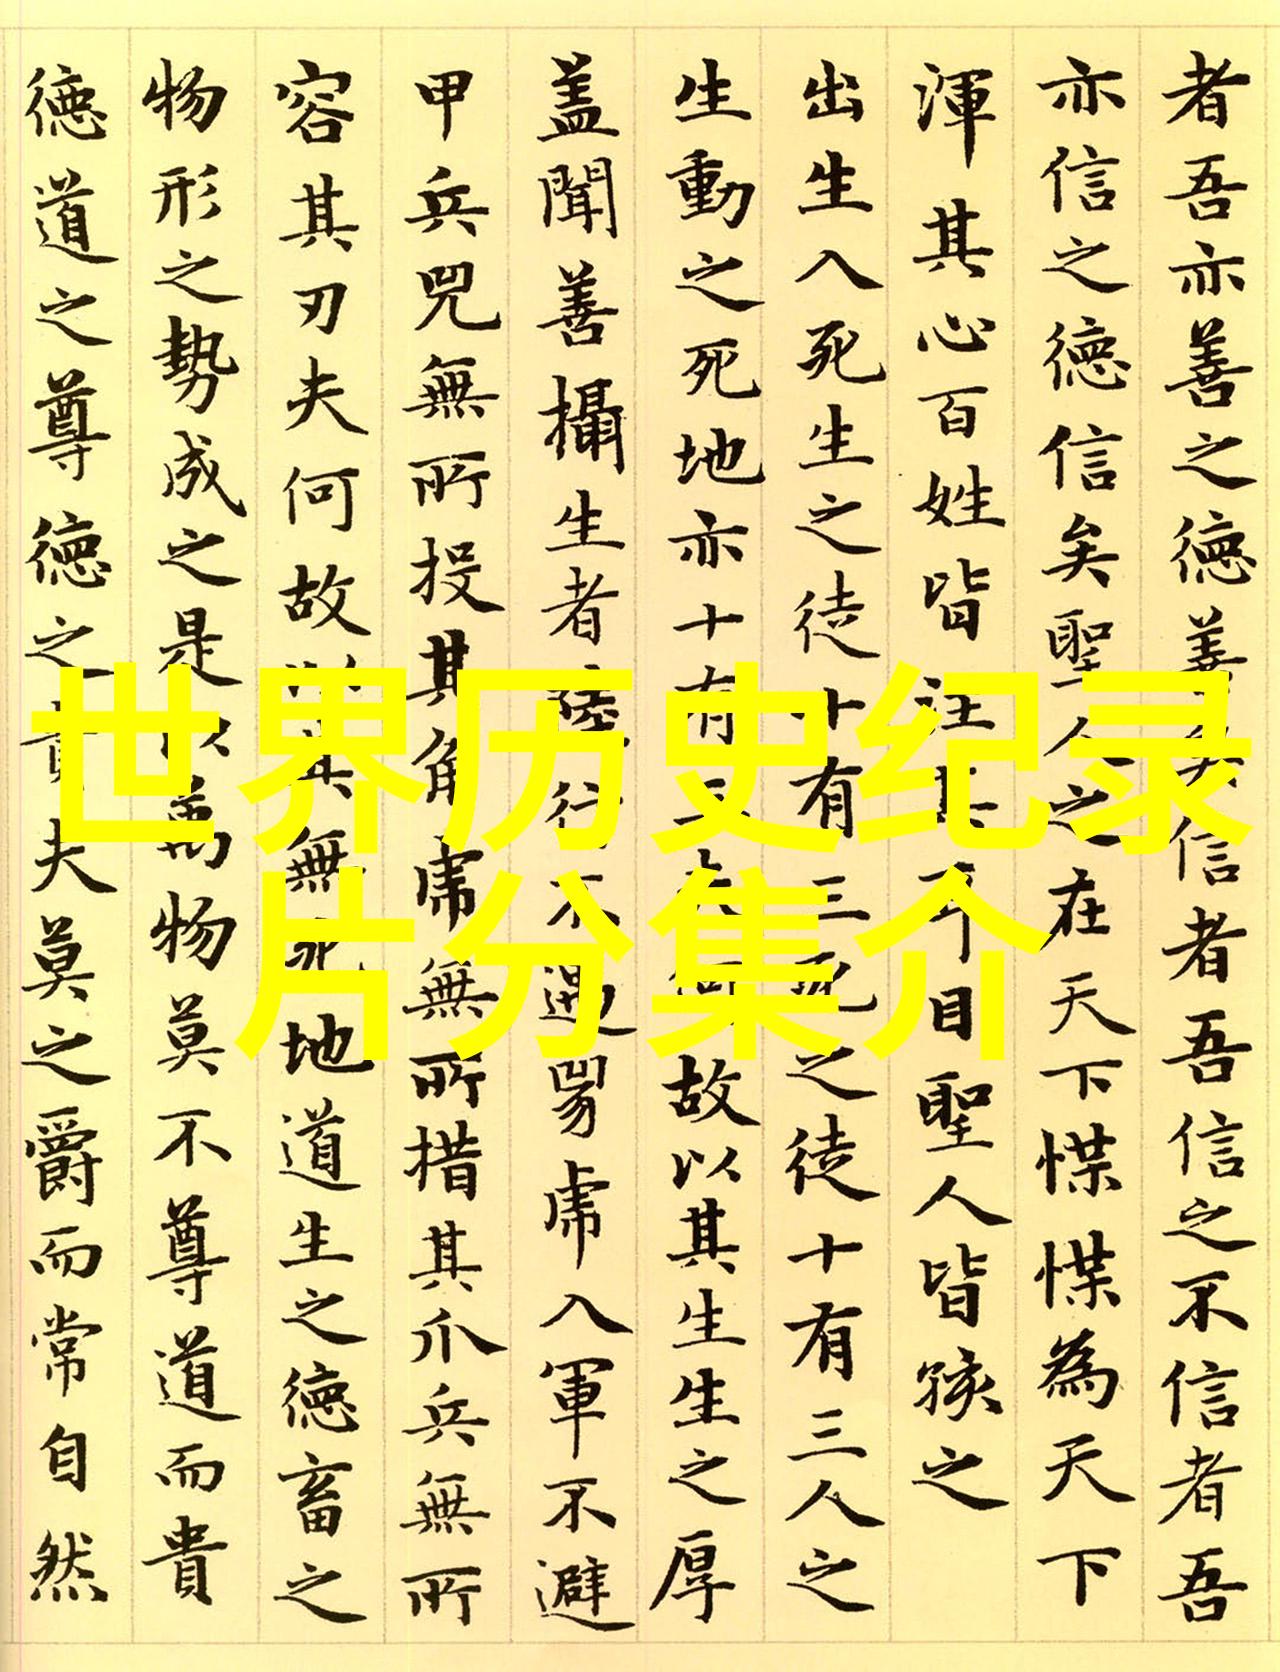 者吾亦善之德善矣信者吾信之不信者吾
亦信之德信矣聖人之在天下惵惵為天下
渾其心百姓皆注其耳目聖人皆孩之
出生入死生之徒十有三死之徒十有三人之
生動之死地亦十有三夫何故以其生生之厚
蓋聞善攝生者陸行不遇兕虎入軍不避
甲兵兕無所投其角虎無所措其爪兵無所
容其刃夫何故以其無死地道生之德畜之
物形之勢成之是以萬物莫不尊道而貴
德道之尊德之貴夫莫之爵而常自然
世界历史纪录
片分集介